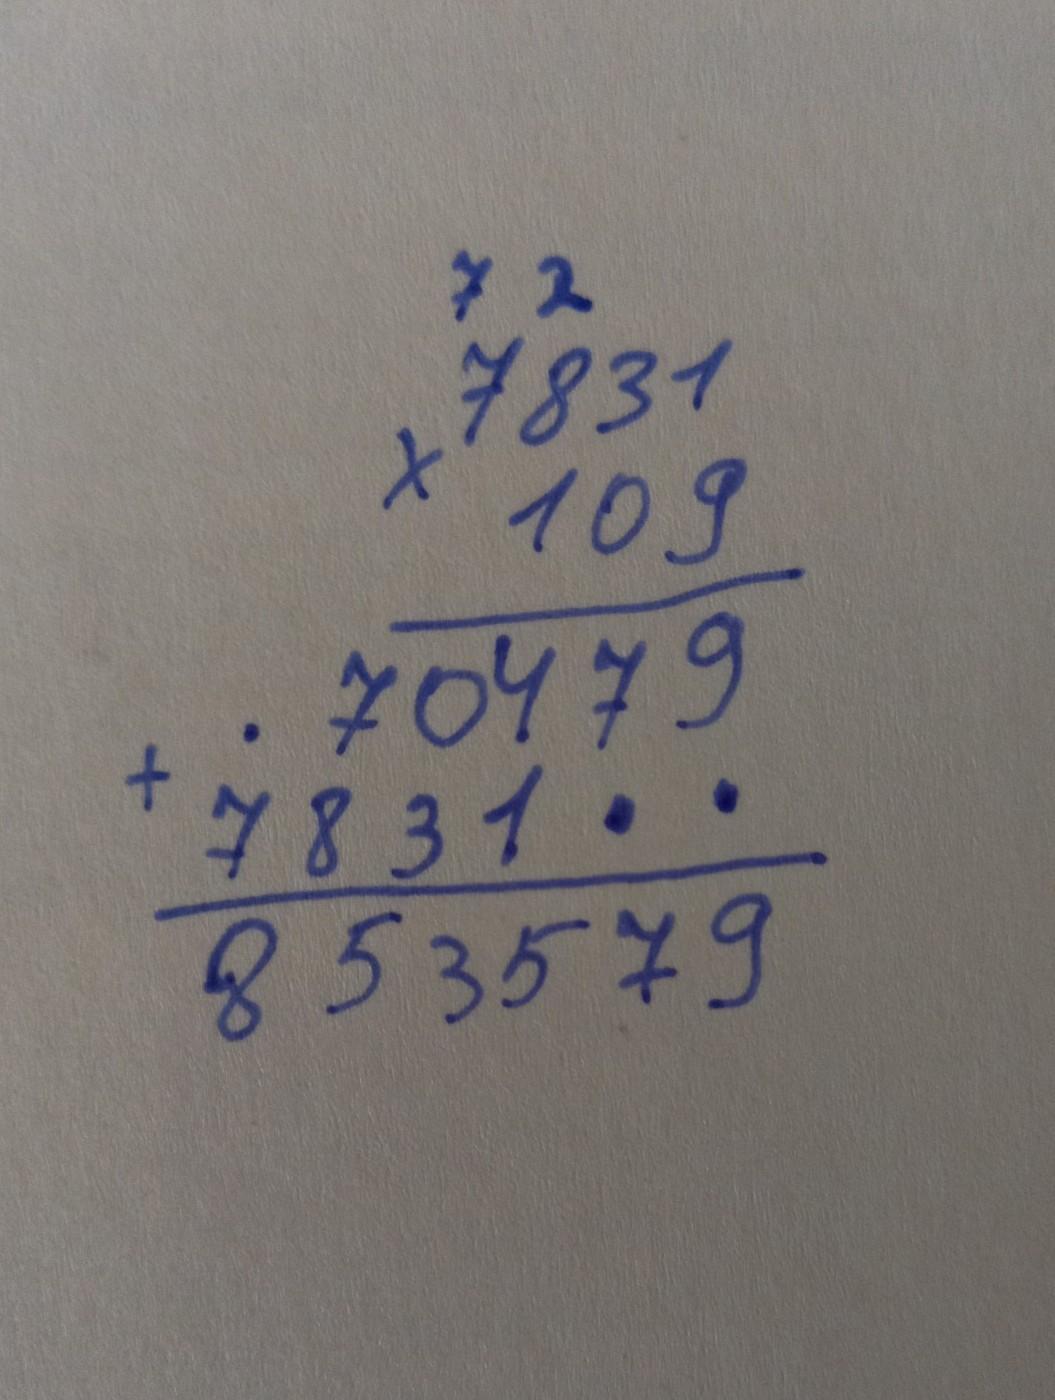 7 2
7831
x 109
. 70479
+ 7831..
853579